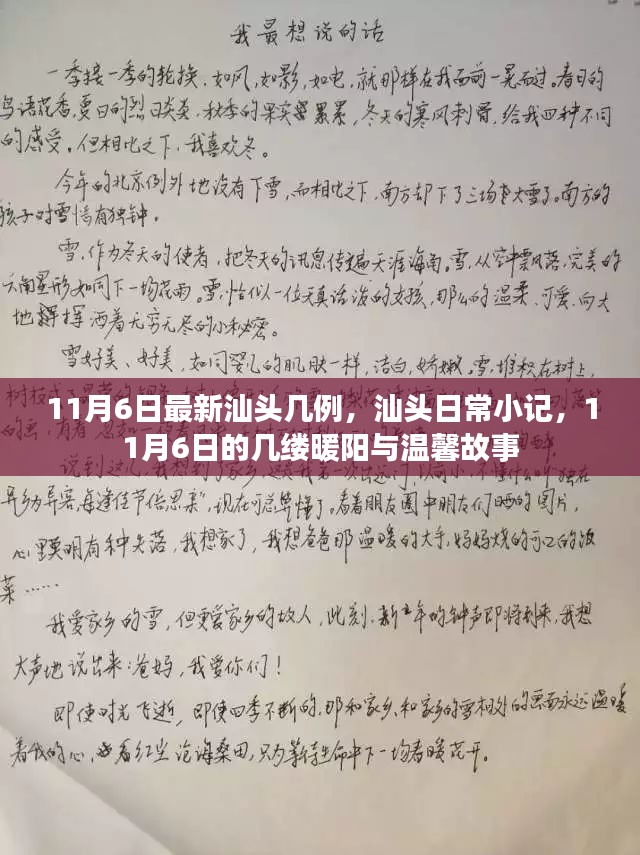 我最想说的话
一季接一季的轮换，如风，如影，如电，就那样在我面前一晃而过。春日的
鸟语花香，夏日的烈日炎炎，秋季的果实累累，冬天的寒风刺骨，给我四种不同
的感受。但相比之下，我喜欢冬。
今年的北京例外地没有下雪，而相比之下，南方却下了三场大雪了。南方的
孩子对雪情有独钟。
雪，作为冬天的使者，把冬天的讯息传遍天涯海角。雪，从空中飘落，完美的
六角星形如同下一场花雨，雪，恰似一位天真活泼的女孩，那么的温柔、可爱，向大
地挥洒着无穷无尽的小秘密。
雪好美、好美，如同婴儿的肌肤一样，洁白，娇嫩。雪，堆积在树上，
11月6日最新汕头几例，汕头日常小记，1
1月6日的几缕暖阳与温馨故事
异乡异客，每逢佳节倍思亲"，现在可总算懂了。看着朋友圈中朋友们晒的图片，
心里莫明有种失落，我想家了，我想爸爸那温暖的大手，妈妈烧的可口的饭
菜……
我爱家乡的雪，但更爱家乡的故人，此刻，新年的钟声即将到来，我想
大声地说出来：爸妈，我爱你们！
即使时光飞逝，即使四季不断的，那和家乡、和家乡的雪相处的画面永远温暖
着我的心，看红尘沧海桑田，只为等待生命中下一场春暖花开。